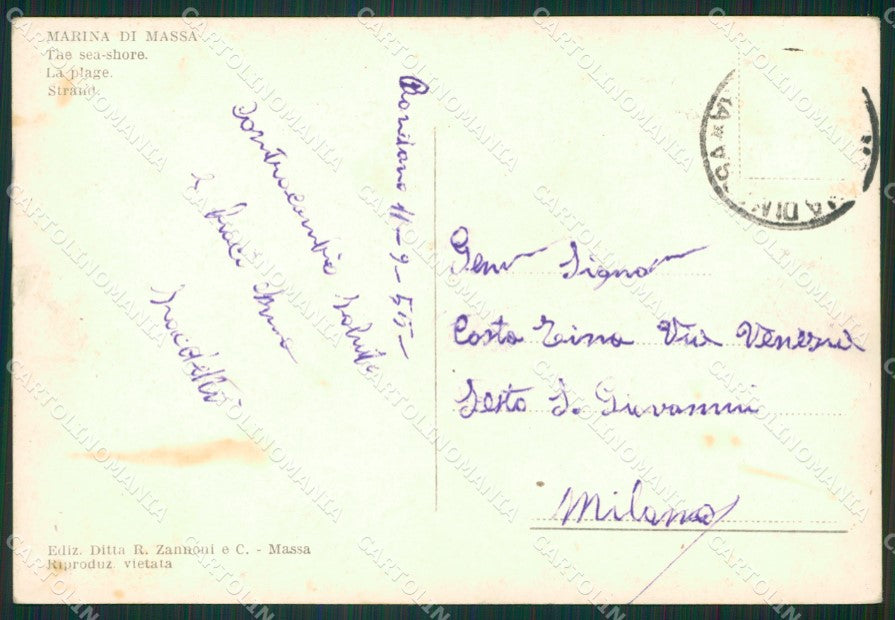 MARINA DI MASSA
The sea-shore.
La plage.
Strand.
11-9-55-
Contracambio Saluti
e Baci Anna
Gen Signo
Costa Tina Via Venezia
Sesto S. Giovanni
Milano
Ediz. Ditta R. Zannoni e C. - Massa
Riproduz. vietata
CARTOLINOMANIA